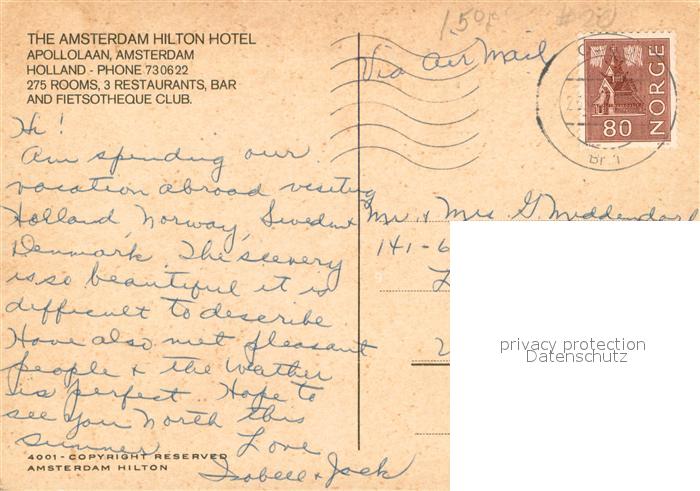 THE AMSTERDAM HILTON HOTEL
APOLLOLAAN, AMSTERDAM
HOLLAND - PHONE 730622
275 ROOMS, 3 RESTAURANTS, BAR
AND FIETSOTHEQUE CLUB.
Hi!
Am spending our
vacation abroad visiting
Holland, Norway, Sweden &
Denmark. The scenery
is so beautiful it is
difficult to describe
Have also met pleasant
people & the weather
is perfect Hope to
see you North this
summer
Love
Isobell & Jack
4001 - COPYRIGHT RESERVED
AMSTERDAM HILTON
#20
Via Air Mail
NORGE
80
Br. 1
Mr. & Mrs. G. Middendorf
141-6
privacy protection
Datenschutz